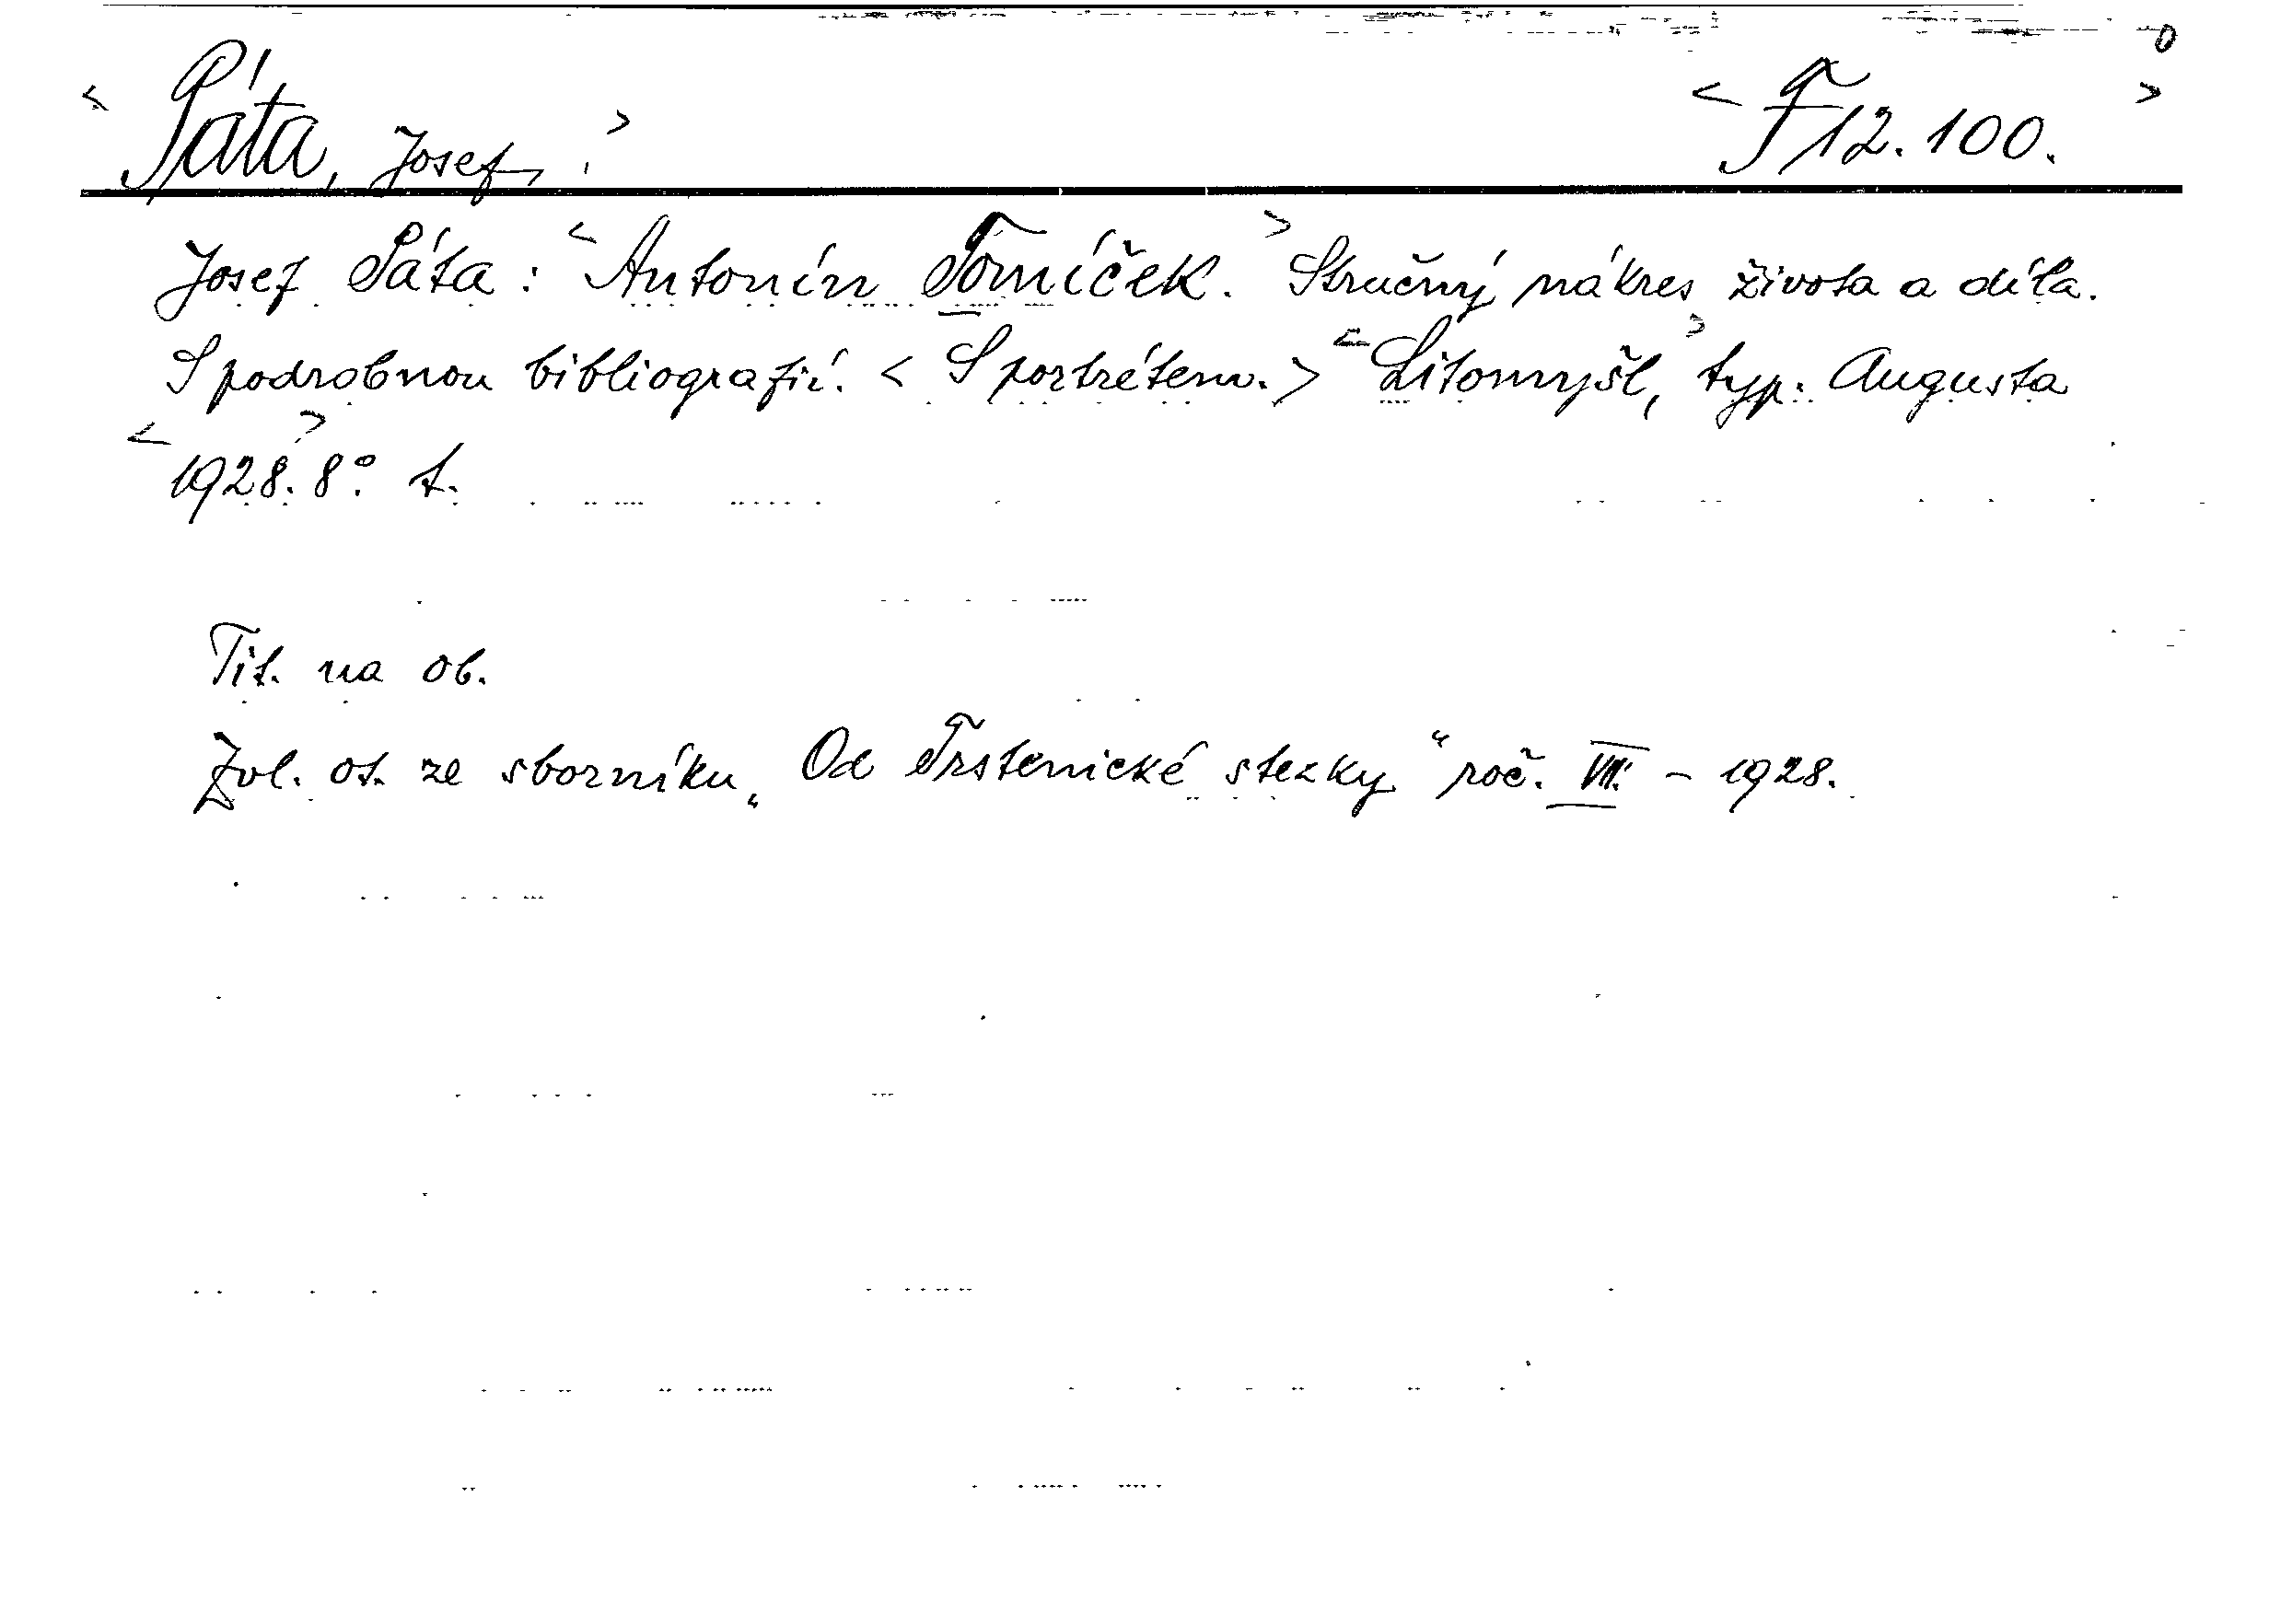 0
< Páta, Josef, . > < F 12.100. >
Josef Páta : < Antonín Tomíček. > Stručný nákres života a díla.
S podrobnou bibliografií. < S portrétem. > < Litomyšl, > typ. Augusta
< 1928. > 8° t.
Tit. na ob.
Zvl. ot. ze sborníku „Od Trstenické stezky“ roč. VII. – 1928.